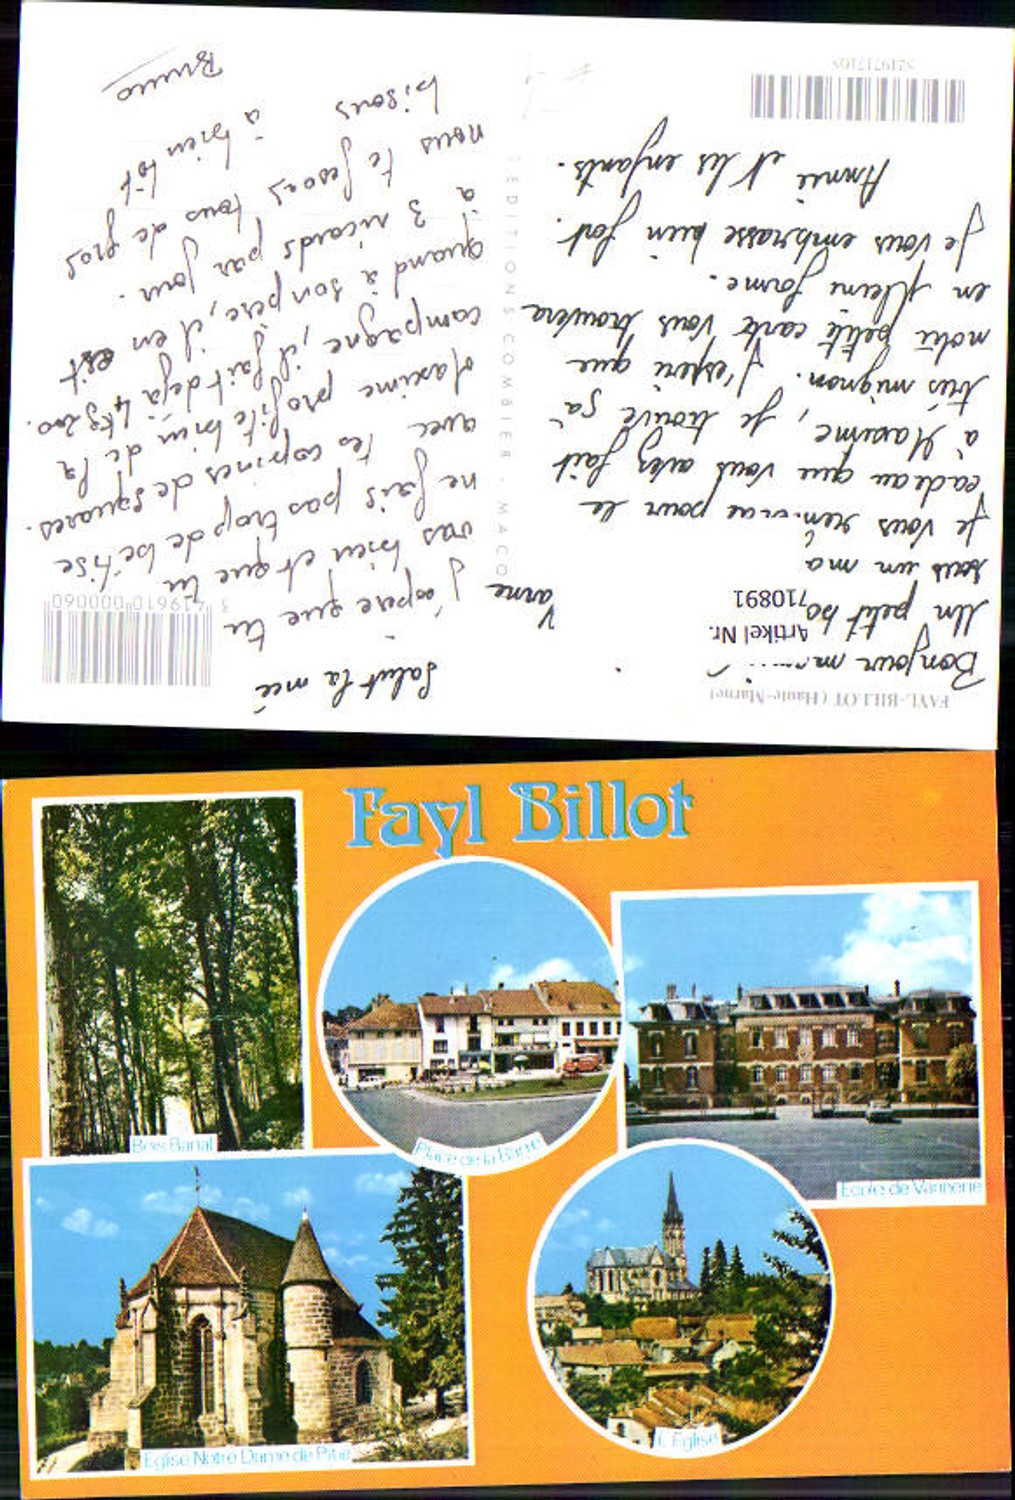 FAYL-BILLOT (Haute-Marne)
Bonjour
Un petit
sous un
Je vous pour le
cadeau que vous avez fait
à Maxime, je trouve ça
très mignon. J'espère que
notre petite carte vous trouvera
en pleine forme.
Je vous embrasse bien fort.
Annie et les enfants.
Artikel Nr.
710891
5219717105
EDITIONS COMBIER - MACON
Salut la
J'espère que tu
vas bien et que tu
ne fais pas trop de bêtise
avec tes copines de squares.
Maxime profite bien de la
campagne, il fait déjà 4kg200.
quand à son père, il en est
à 3 ricards par jour.
nous te fesons tous de gros
bisous
à bien tôt
Bruno
3 419610 000060
Fayl Billot
Bois Banal
Place de la Barre
Ecole de Vannerie
Eglise Notre Dame de Pitié
L'Eglise